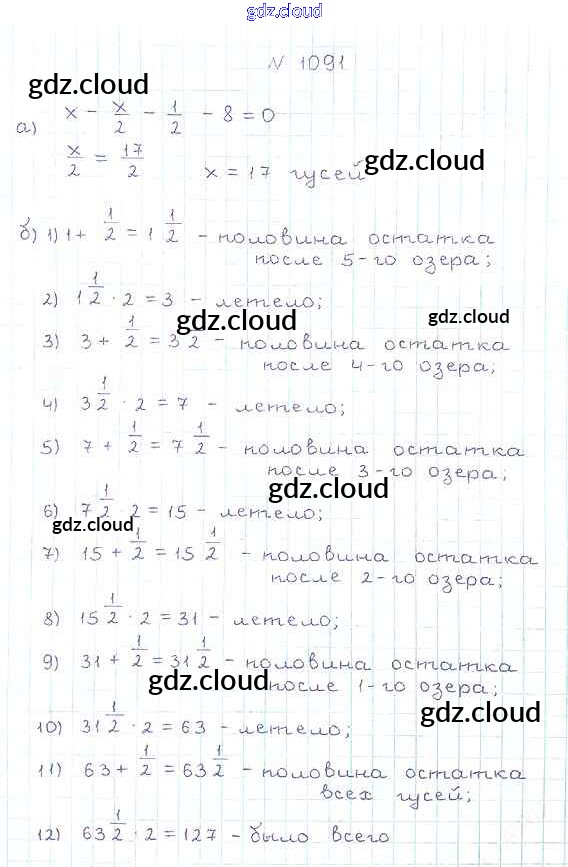 gdz.cloud
№ 1091
gdz.cloud
а) x - x/2 - 1/2 - 8 = 0
x/2 = 17/2 x = 17 гусей
gdz.cloud
б) 1) 1 + 1/2 = 1 1/2 - половина остатка
после 5-го озера;
2) 1 1/2 · 2 = 3 - летело;
gdz.cloud
gdz.cloud
3) 3 + 1/2 = 3 2 - половина остатка
после 4-го озера;
4) 3 1/2 · 2 = 7 - летело;
5) 7 + 1/2 = 7 1/2 - половина остатка
после 3-го озера;
gdz.cloud
6) 7 1/2 · 2 = 15 - летело;
gdz.cloud
7) 15 + 1/2 = 15 1/2 - половина остатка
после 2-го озера;
8) 15 1/2 · 2 = 31 - летело;
9) 31 + 1/2 = 31 1/2 - половина остатка
gdz.cloud
после 1-го озера;
gdz.cloud
10) 31 1/2 · 2 = 63 - летело;
11) 63 + 1/2 = 63 1/2 - половина остатка
всех гусей;
12) 63 1/2 · 2 = 127 - было всего